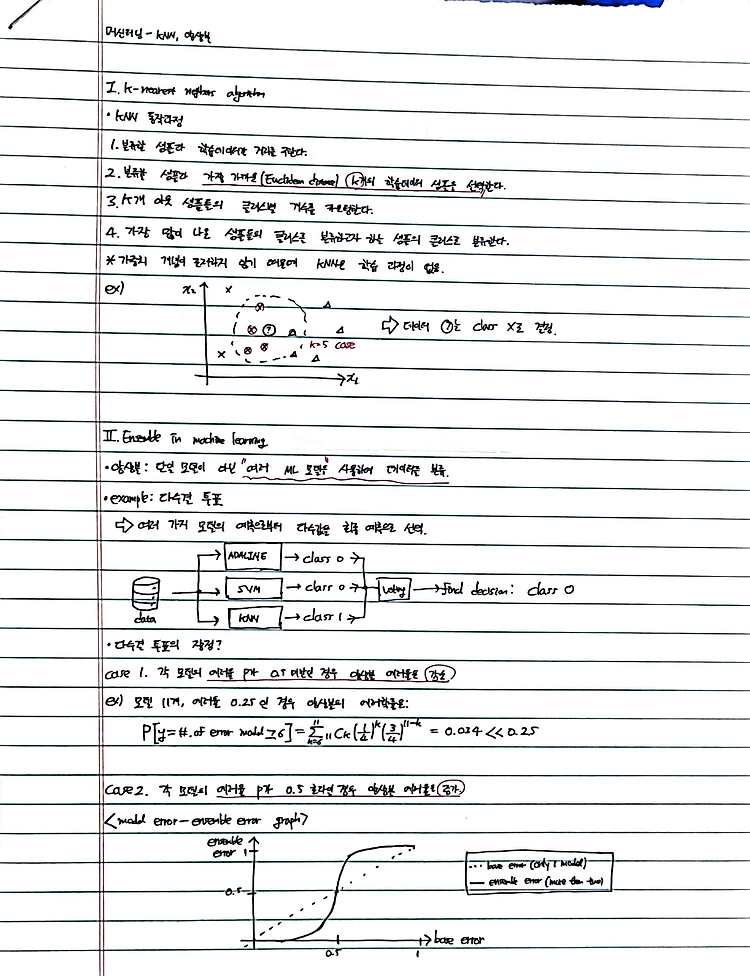 머신러닝 - KNN, 앙상블
I. K-nearest neighbors algorithm
• KNN 동작과정
1. 분류할 샘플과 학습데이터의 거리를 구한다.
2. 분류할 샘플과 가장 가까운(Euclidean channel) K개의 학습데이터 샘플을 선택한다.
3. K개 이웃 샘플들의 클래스별 개수를 카운팅한다.
4. 가장 많이 나온 샘플들의 클래스로 분류하고자 하는 샘플의 클래스로 분류한다.
* 가중치 개념이 존재하지 않기 때문에 KNN은 학습 과정이 없음.
ex)
x₂
⇨ 데이터 ?는 class X로 결정.
k=5 case
x₁
II. Ensemble in machine learning
• 앙상블: 단일 모델이 아닌 "여러 ML 모델을" 사용하여 데이터를 분류.
• example: 다수결 투표
⇨ 여러 가지 모델의 예측으로부터 다수값을 최종 예측으로 선택.
ADALINE → class 0
SVM → class 0
KNN → class 1
data
Voting → final decision: class 0
• 다수결 투표의 장점?
case 1. 각 모델의 에러율 p가 0.5 미만인 경우 앙상블 에러율은 감소
ex) 모델 11개, 에러율 0.25인 경우 앙상블의 에러확률은:
P[y=#.of error model ≥6] = Σ_{k=6}^{11} ₁₁C_k (1/4)^k (3/4)^{11-k} = 0.034 << 0.25
case 2. 각 모델의 에러율 p가 0.5 초과인 경우 앙상블 에러율은 증가
<model error - ensemble error graph>
ensemble error
1
0.5
0.5
1
base error
base error (only 1 model)
ensemble error (more than two)